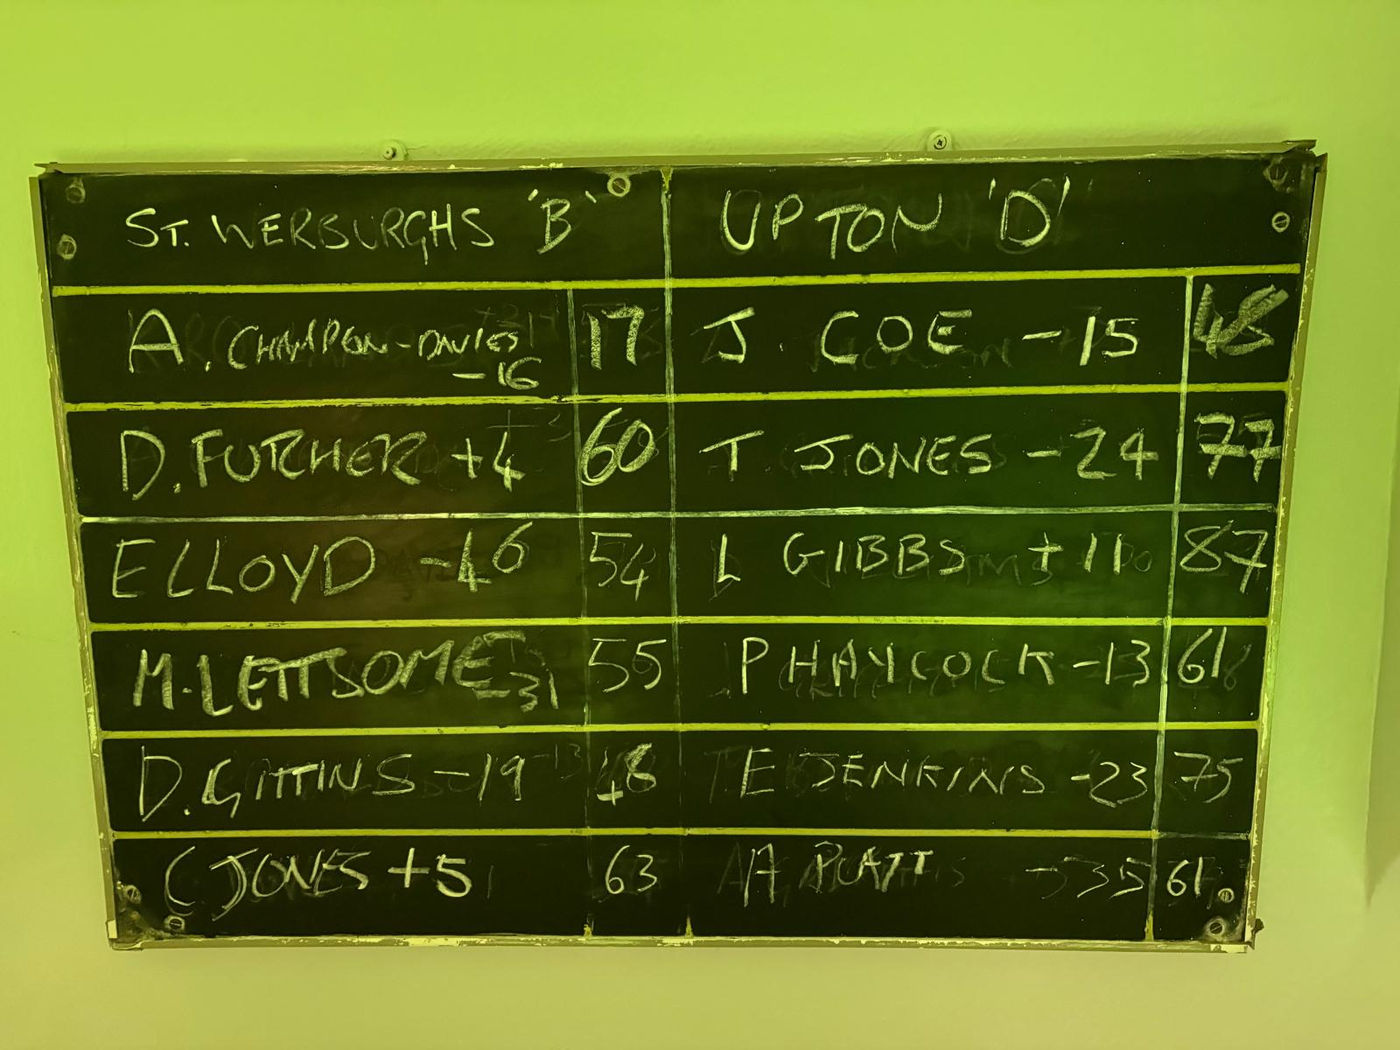 ST. WERBURGHS 'B' UPTON 'D'
A. CHAMPION-DAVIES 17 J. COE -15 48
-16
D. FUTCHER +4 60 T. JONES -24 77
E LLOYD -46 54 L GIBBS +11 87
M. LETTSOME -31 55 P HAYCOCK -13 61
D. GITTINS -19 48 E JENKINS -23 75
C JONES +5 63 A PLATT -35 61